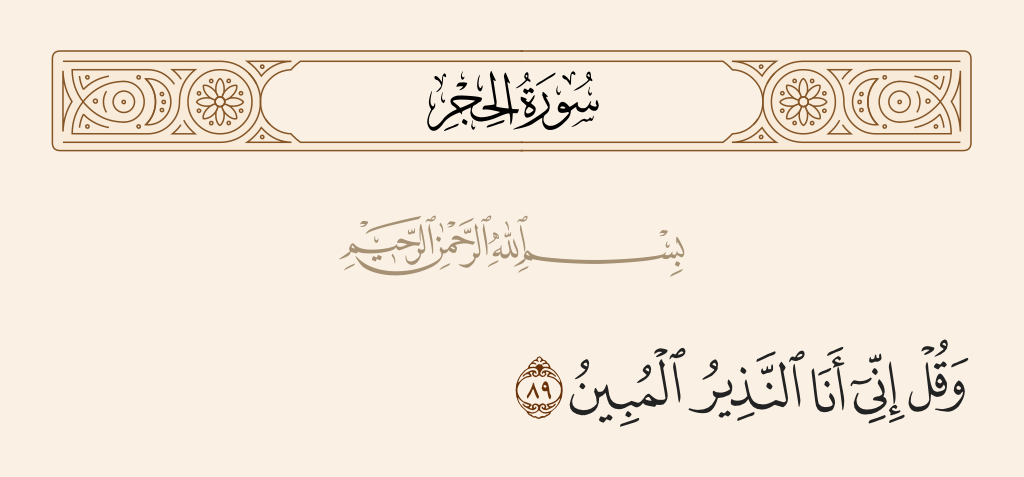 سُورَةُ الحِجْرِ
بِسْمِ ٱللَّهِ ٱلرَّحْمَٰنِ ٱلرَّحِيمِ
وَقُلْ إِنِّىٓ أَنَا ٱلنَّذِيرُ ٱلْمُبِينُ ٨٩